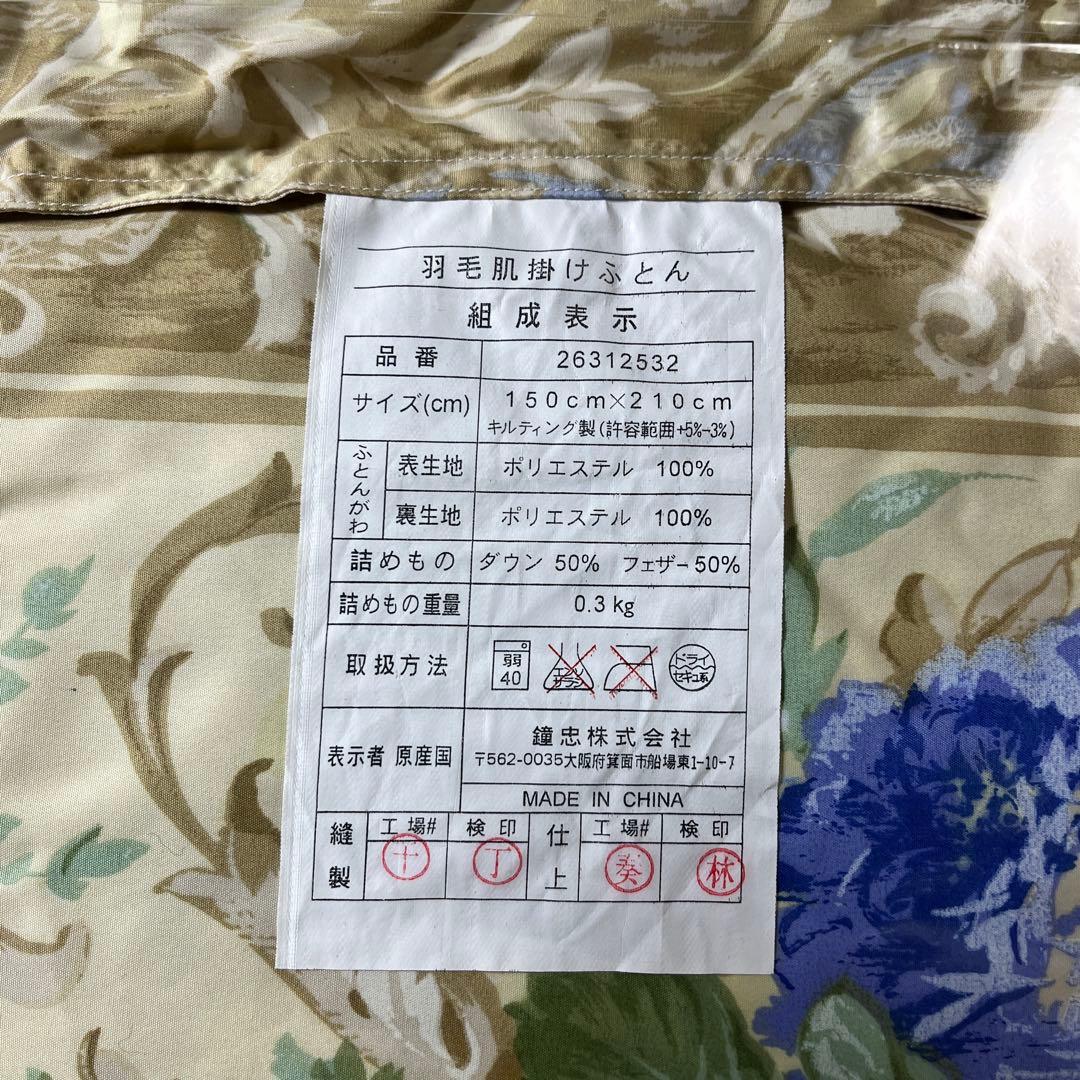 羽毛肌掛けふとん
組成表示
品番 26312532
サイズ(cm) 150cm×210cm
キルティング製(許容範囲+5%-3%)
ふとんがわ
表生地 ポリエステル 100%
裏生地 ポリエステル 100%
詰めもの ダウン 50% フェザー50%
詰めもの重量 0.3kg
取扱方法
弱
40
エンソ
サラシ
ドライ
セキュ系
表示者 原産国
鐘忠株式会社
〒562-0035大阪府箕面市船場東1-10-7
MADE IN CHINA
縫製 工場# 検印 仕上 工場# 検印
十 丁 癸 林